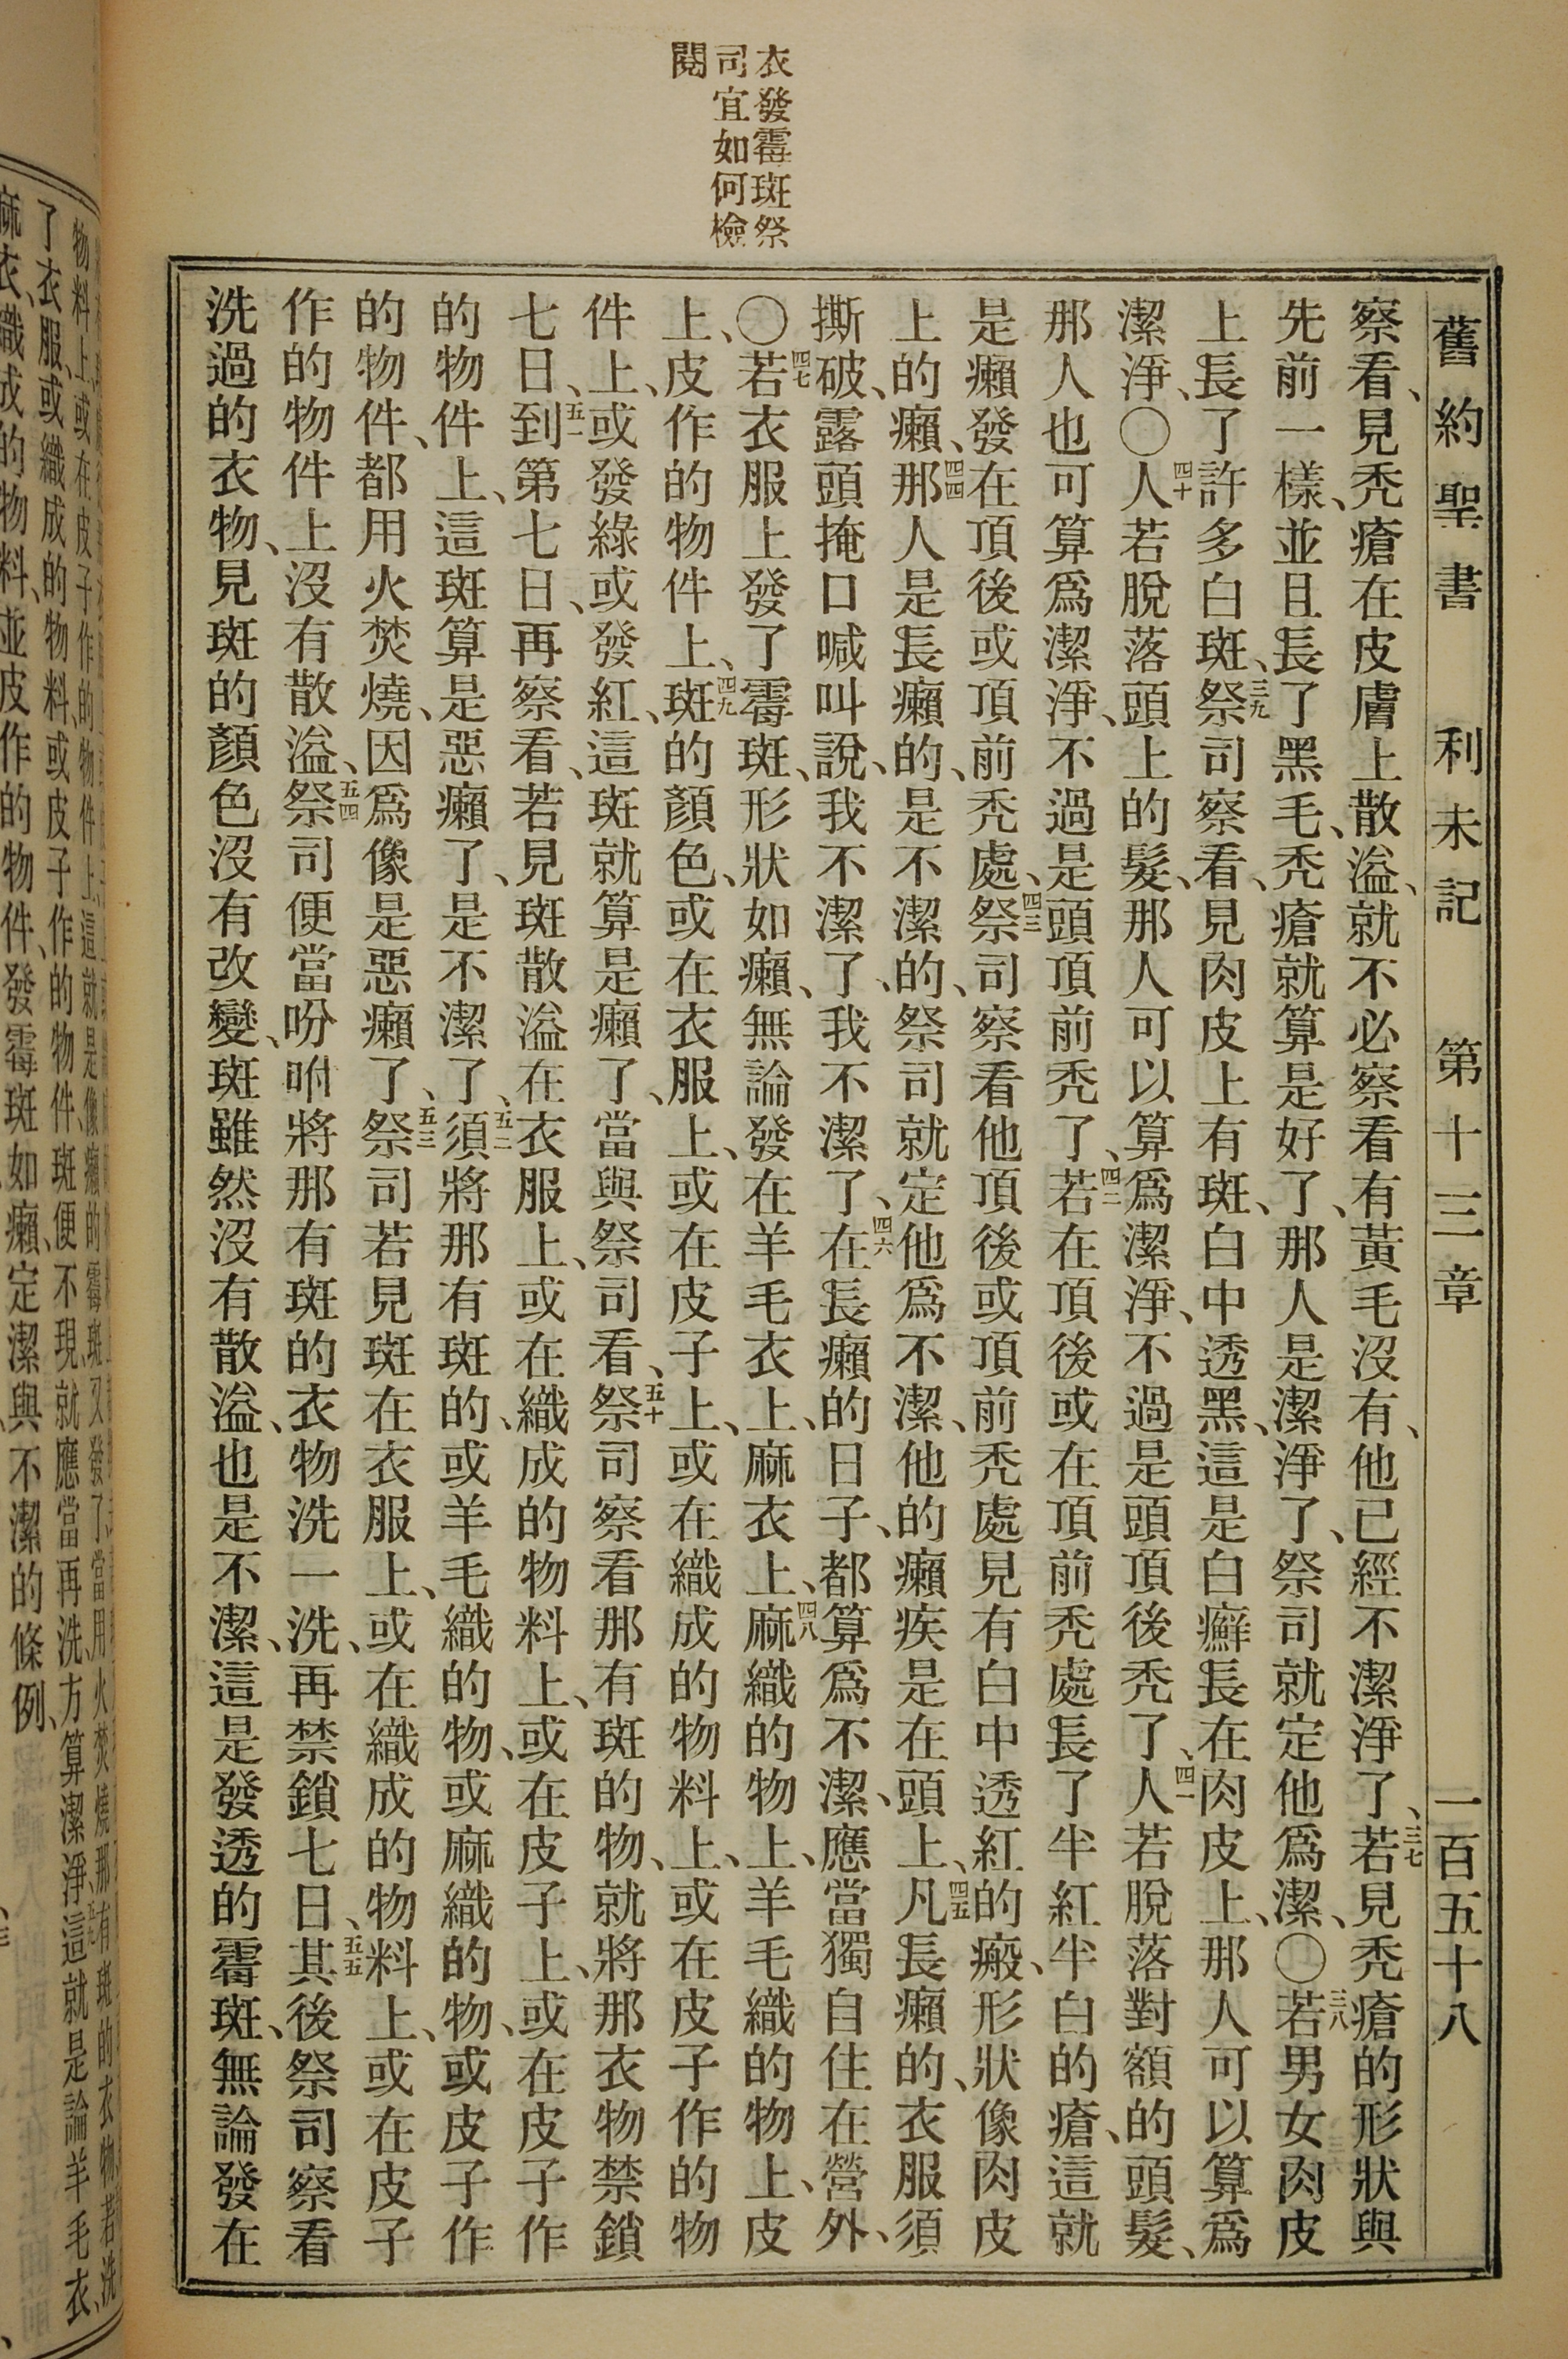 衣發霉斑祭
司宜如何檢
閱
舊約聖書 利未記 第十三章 一百五十八
察看、見禿瘡在皮膚上散溢、就不必察看有黃毛沒有、他已經不潔淨了、三七若見禿瘡的形狀與
先前一樣、並且長了黑毛、禿瘡就算是好了、那人是潔淨了、祭司就定他爲潔、〇三八若男女肉皮
上長了許多白斑、三九祭司察看、見肉皮上有斑、白中透黑、這是白癬長在肉皮上、那人可以算爲
潔淨、〇四十人若脫落頭上的髮、那人可以算爲潔淨、不過是頭頂後禿了、四一人若脫落對額的頭髮、
那人也可算爲潔淨、不過是頭頂前禿了、四二若在頂後或在頂前禿處長了半紅半白的瘡、這就
是癩發在頂後或頂前禿處、四三祭司察看他頂後或頂前禿處見有白中透紅的瘢、形狀像肉皮
上的癩、四四那人是長癩的、是不潔的、祭司就定他爲不潔、他的癩疾是在頭上、四五凡長癩的、衣服須
撕破、露頭掩口喊叫說、我不潔了、我不潔了、四六在長癩的日子、都算爲不潔、應當獨自住在營外、
〇四七若衣服上發了霉斑、形狀如癩、無論發在羊毛衣上、麻衣上、四八麻織的物上、羊毛織的物上、皮
上、皮作的物件上、四九斑的顏色、或在衣服上、或在皮子上、或在織成的物料上、或在皮子作的物
件上、或發綠或發紅、這斑就算是癩了、當與祭司看、五十祭司察看那有斑的物、就將那衣物禁鎖
七日、五一到第七日、再察看、若見斑散溢在衣服上、或在織成的物料上、或在皮子上、或在皮子作
的物件上、這斑算是惡癩了、是不潔了、五二須將那有斑的、或羊毛織的物、或麻織的物、或皮子作
的物件、都用火焚燒、因爲像是惡癩了、五三祭司若見斑在衣服上、或在織成的物料上、或在皮子
作的物件上沒有散溢、五四祭司便當吩咐將那有斑的衣物洗一洗、再禁鎖七日、五五其後祭司察看
洗過的衣物、見斑的顏色沒有改變、斑雖然沒有散溢、也是不潔、這是發透的霉斑、無論發在
物料上、或在皮子作的物件上、這就是像癩的霉斑又發了、當用火焚燒那有斑的衣物、若洗
了衣服、或織成的物料、或皮子作的物件、斑便不現、就應當再洗、方算潔淨、這就是論羊毛衣、
麻衣、織成的物料、並皮作的物件、發霉斑如癩、定潔與不潔的條例、